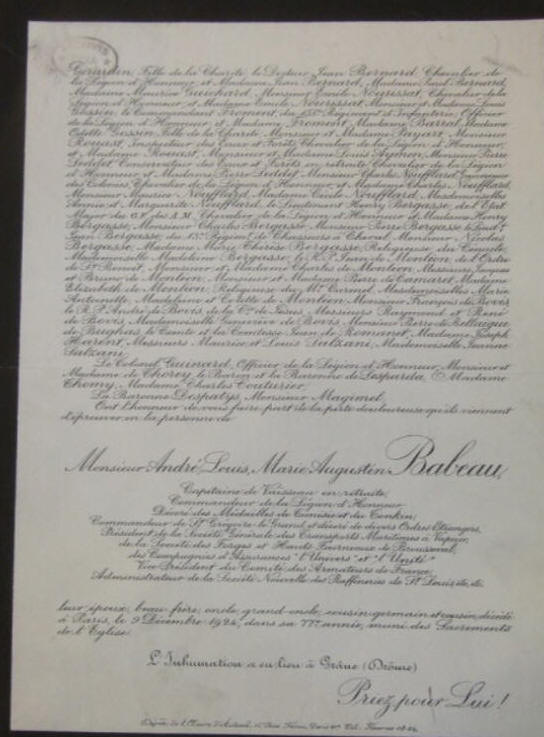 Gérardin, Fille de la Charité, le Docteur Jean Bernard, Chevalier de
la Légion d'Honneur et Madame Jean Bernard, Madame Paul Bernard,
Madame Maurice Guichard, Monsieur Emile Nourissat, Chevalier de la
Légion d'Honneur et Madame Emile Nourissat, Monsieur et Madame Louis
Gossin, le Commandant Fromont, du Régiment d'Infanterie, Officier
de la Légion d'Honneur et Madame Fromont, Madame Barral, Madame
Odette Gossin, Fille de la Charité, Monsieur et Madame Payart, Monsieur
Rouast, Inspecteur des Eaux et Forêts, Chevalier de la Légion d'Honneur,
et Madame Rouast, Monsieur et Madame Louis Monsieur Pierre
Dedelot, Conservateur des Eaux et Forêts en retraite, Chevalier de la Légion
d'Honneur et Madame Pierre Dedelot, Monsieur Charles Noufflard, Gouverneur
des Colonies, Chevalier de la Légion d'Honneur, et Madame Charles Noufflard,
Monsieur Maurice Noufflard, Madame Noufflard, Mesdemoiselles
Annie et Marguerite Noufflard, le Lieutenant Henry Bergasse, de l'Etat
Major des Chevalier de la Légion d'Honneur et Madame Henry
Bergasse, Monsieur Charles Bergasse, Monsieur Pierre Bergasse, le Lieut.t
Jean Bergasse, du Régiment de Chasseurs à Cheval, Monsieur Nicolas
Bergasse, Madame Marie Thérèse Bergasse, Religieuse du Cénacle,
Mademoiselle Madeleine Bergasse, le R.P. Jean de Montéon, de l'Ordre
de St Benoit, Monsieur et Madame Charles de Montéon, Messieurs Jacques
et Bruno de Montéon, Monsieur et Madame Pierre de Camaret, Madame
Elizabeth de Montéon, Religieuse du Mt Carmel, Mesdemoiselles Marie
Antoinette, Madeleine et Colette de Montéon, Monsieur François de Bovis,
le R.P. André de Bovis, de la Cie de Jésus, Messieurs Raymond et René
de Bovis, Mademoiselle Geneviève de Bovis, Monsieur Pierre de
le Comte et la Comtesse Jean de Romanet, Madame Joseph
Harent, Messieurs Maurice et Louis Salzani, Mademoiselle Jeanne
Salzani,
Le Colonel Guinard, Officier de la Légion d'Honneur, Monsieur et
Madame de Thorey, le Baron et la Baronne de Lesparda, Madame
Thomy, Madame Charles Couturier,
La Baronne Despatys, Monsieur Magimel,
Ont l'honneur de vous faire part de la perte douloureuse qu'ils viennent
d'éprouver en la personne de
Monsieur André, Louis, Marie, Augustin Babeau,
Capitaine de Vaisseau en retraite,
Commandeur de la Légion d'Honneur,
Décoré des Médailles de Tunisie et du Tonkin,
Commandeur de St Grégoire le Grand et décoré de divers Ordres Etrangers,
Président de la Société Générale des Transports Maritimes à Vapeur,
de la Société des Forges et Hauts Fourneaux de Brousseval,
des Compagnies d'Assurances "l'Univers" et "l'Unité"
Vice-Président du Comité des Armateurs de France,
Administrateur de la Société Nouvelle des Raffineries de St Louis, etc, etc.
leur époux, beau-frère, oncle, grand-oncle, cousin-germain et cousin, décédé
à Paris, le 9 Décembre 1924, dans sa 77e année, muni des Sacrements
de l'Eglise.
L'Inhumation a eu lieu à Grâne (Drôme)
Priez pour Lui!